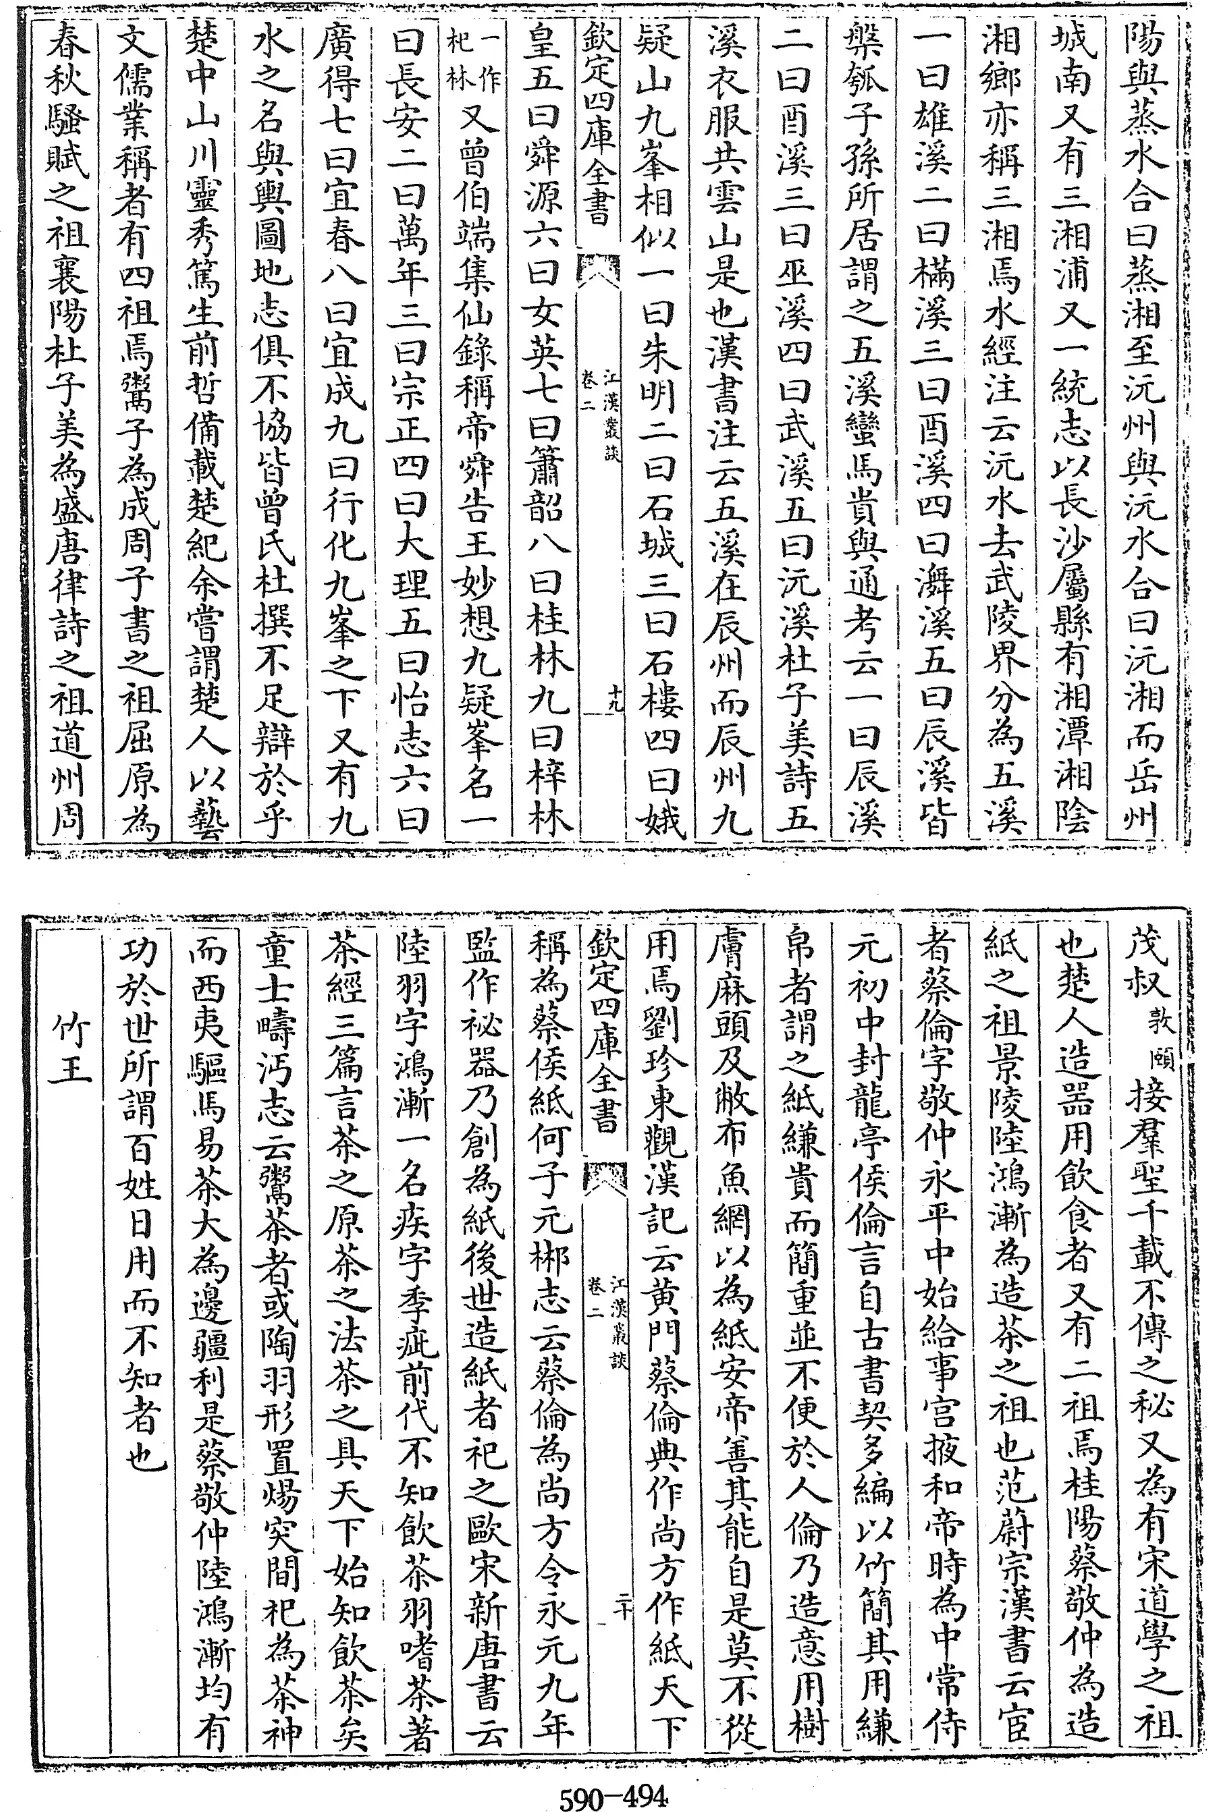 陽與蒸水合曰蒸湘至沅州與沅水合曰沅湘而岳州
城南又有三湘浦又一統志以長沙屬縣有湘潭湘陰
湘鄉亦稱三湘焉水經注云沅水去武陵界分為五溪
一曰雄溪二曰樠溪三曰酉溪四曰潕溪五曰辰溪皆
槃瓠子孫所居謂之五溪蠻馬貴與通考云一曰辰溪
二曰酉溪三曰巫溪四曰武溪五曰沅溪杜子美詩五
溪衣服共雲山是也漢書注云五溪在辰州而辰州九
疑山九峯相似一曰朱明二曰石城三曰石樓四曰娥
欽定四庫全書 江漢叢談 卷二 十九
皇五曰舜源六曰女英七曰簫韶八曰桂林九曰梓林
一作杞林又曾伯端集仙錄稱帝舜告王妙想九疑峯名一
曰長安二曰萬年三曰宗正四曰大理五曰怡志六曰
廣得七曰宜春八曰宜成九曰行化九峯之下又有九
水之名與輿圖地志俱不協皆曾氏杜撰不足辯於乎
楚中山川靈秀篤生前哲備載楚紀余嘗謂楚人以藝
文儒業稱者有四祖焉鬻子為成周子書之祖屈原為
春秋騷賦之祖襄陽杜子美為盛唐律詩之祖道州周
茂叔敦頤接羣聖千載不傳之秘又為有宋道學之祖
也楚人造器用飲食者又有二祖焉桂陽蔡敬仲為造
紙之祖景陵陸鴻漸為造茶之祖也范蔚宗漢書云宦
者蔡倫字敬仲永平中始給事宮掖和帝時為中常侍
元初中封龍亭侯倫言自古書契多編以竹簡其用縑
帛者謂之紙縑貴而簡重並不便於人倫乃造意用樹
膚麻頭及敝布魚網以為紙安帝善其能自是莫不從
用焉劉珍東觀漢記云黃門蔡倫典作尚方作紙天下
欽定四庫全書 江漢叢談 卷二 二十
稱為蔡侯紙何子元郴志云蔡倫為尚方令永元九年
監作祕器乃創為紙後世造紙者祀之歐宋新唐書云
陸羽字鴻漸一名疾字季疵前代不知飲茶羽嗜茶著
茶經三篇言茶之原茶之法茶之具天下始知飲茶矣
童士疇沔志云鬻茶者或陶羽形置煬突間祀為茶神
而西夷驅馬易茶大為邊疆利是蔡敬仲陸鴻漸均有
功於世所謂百姓日用而不知者也
竹王
590-494